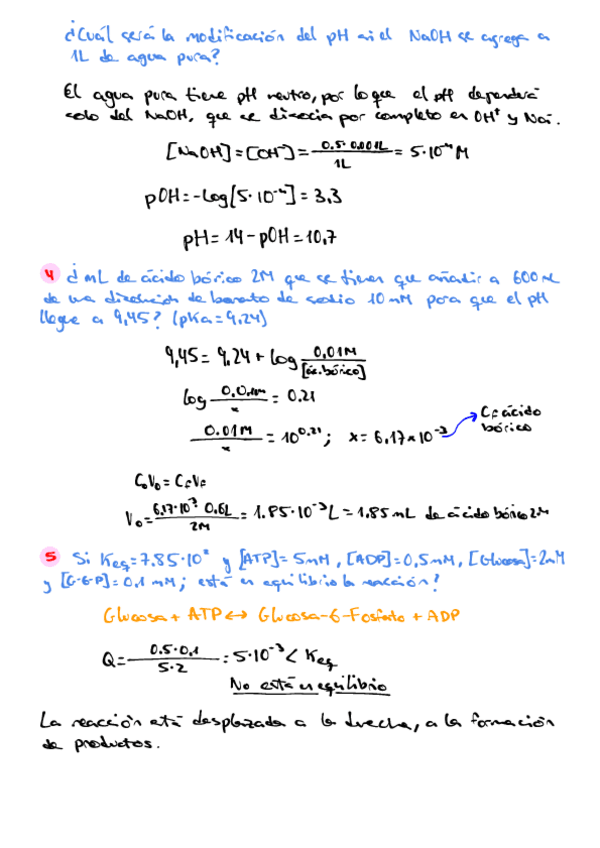 ¿Cuál será la modificación del pH si el NaOH se agrega a
1L de agua pura?
El agua pura tiene pH neutro, por lo que el pH dependerá
solo del NaOH, que se disocia por completo en OH⁺ y Na⁻.
[NaOH] = [OH⁻] = 0.5 · 0.001L / 1L = 5·10⁻⁴ M
pOH = -log[5·10⁻⁴] = 3,3
pH = 14 - pOH = 10,7
4 ¿mL de ácido bórico 2M que se tienen que añadir a 600mL
de una disolución de borato de sodio 10mM para que el pH
llegue a 9,45? (pKa = 9,24)
9,45 = 9,24 + log 0,01M / [ác. bórico]
log 0,01M / x = 0.21
0.01M / x = 10^0.21 ; x = 6,17×10⁻³
Cf ácido
bórico
C₀V₀ = CfVf
V₀ = 6.17·10⁻³ 0,6L / 2M = 1.85·10⁻³L = 1.85 mL de ácido bórico 2M
5 Si Keq = 7,85·10² y [ATP] = 5mM, [ADP] = 0,5mM, [Glucosa] = 2mM
y [G-6-P] = 0.1 mM; ¿está en equilibrio la reacción?
Glucosa + ATP ↔ Glucosa-6-Fosfato + ADP
Q = 0.5·0,1 / 5·2 = 5·10⁻³ < Keq
No está en equilibrio
La reacción está desplazada a la derecha, a la formación
de productos.